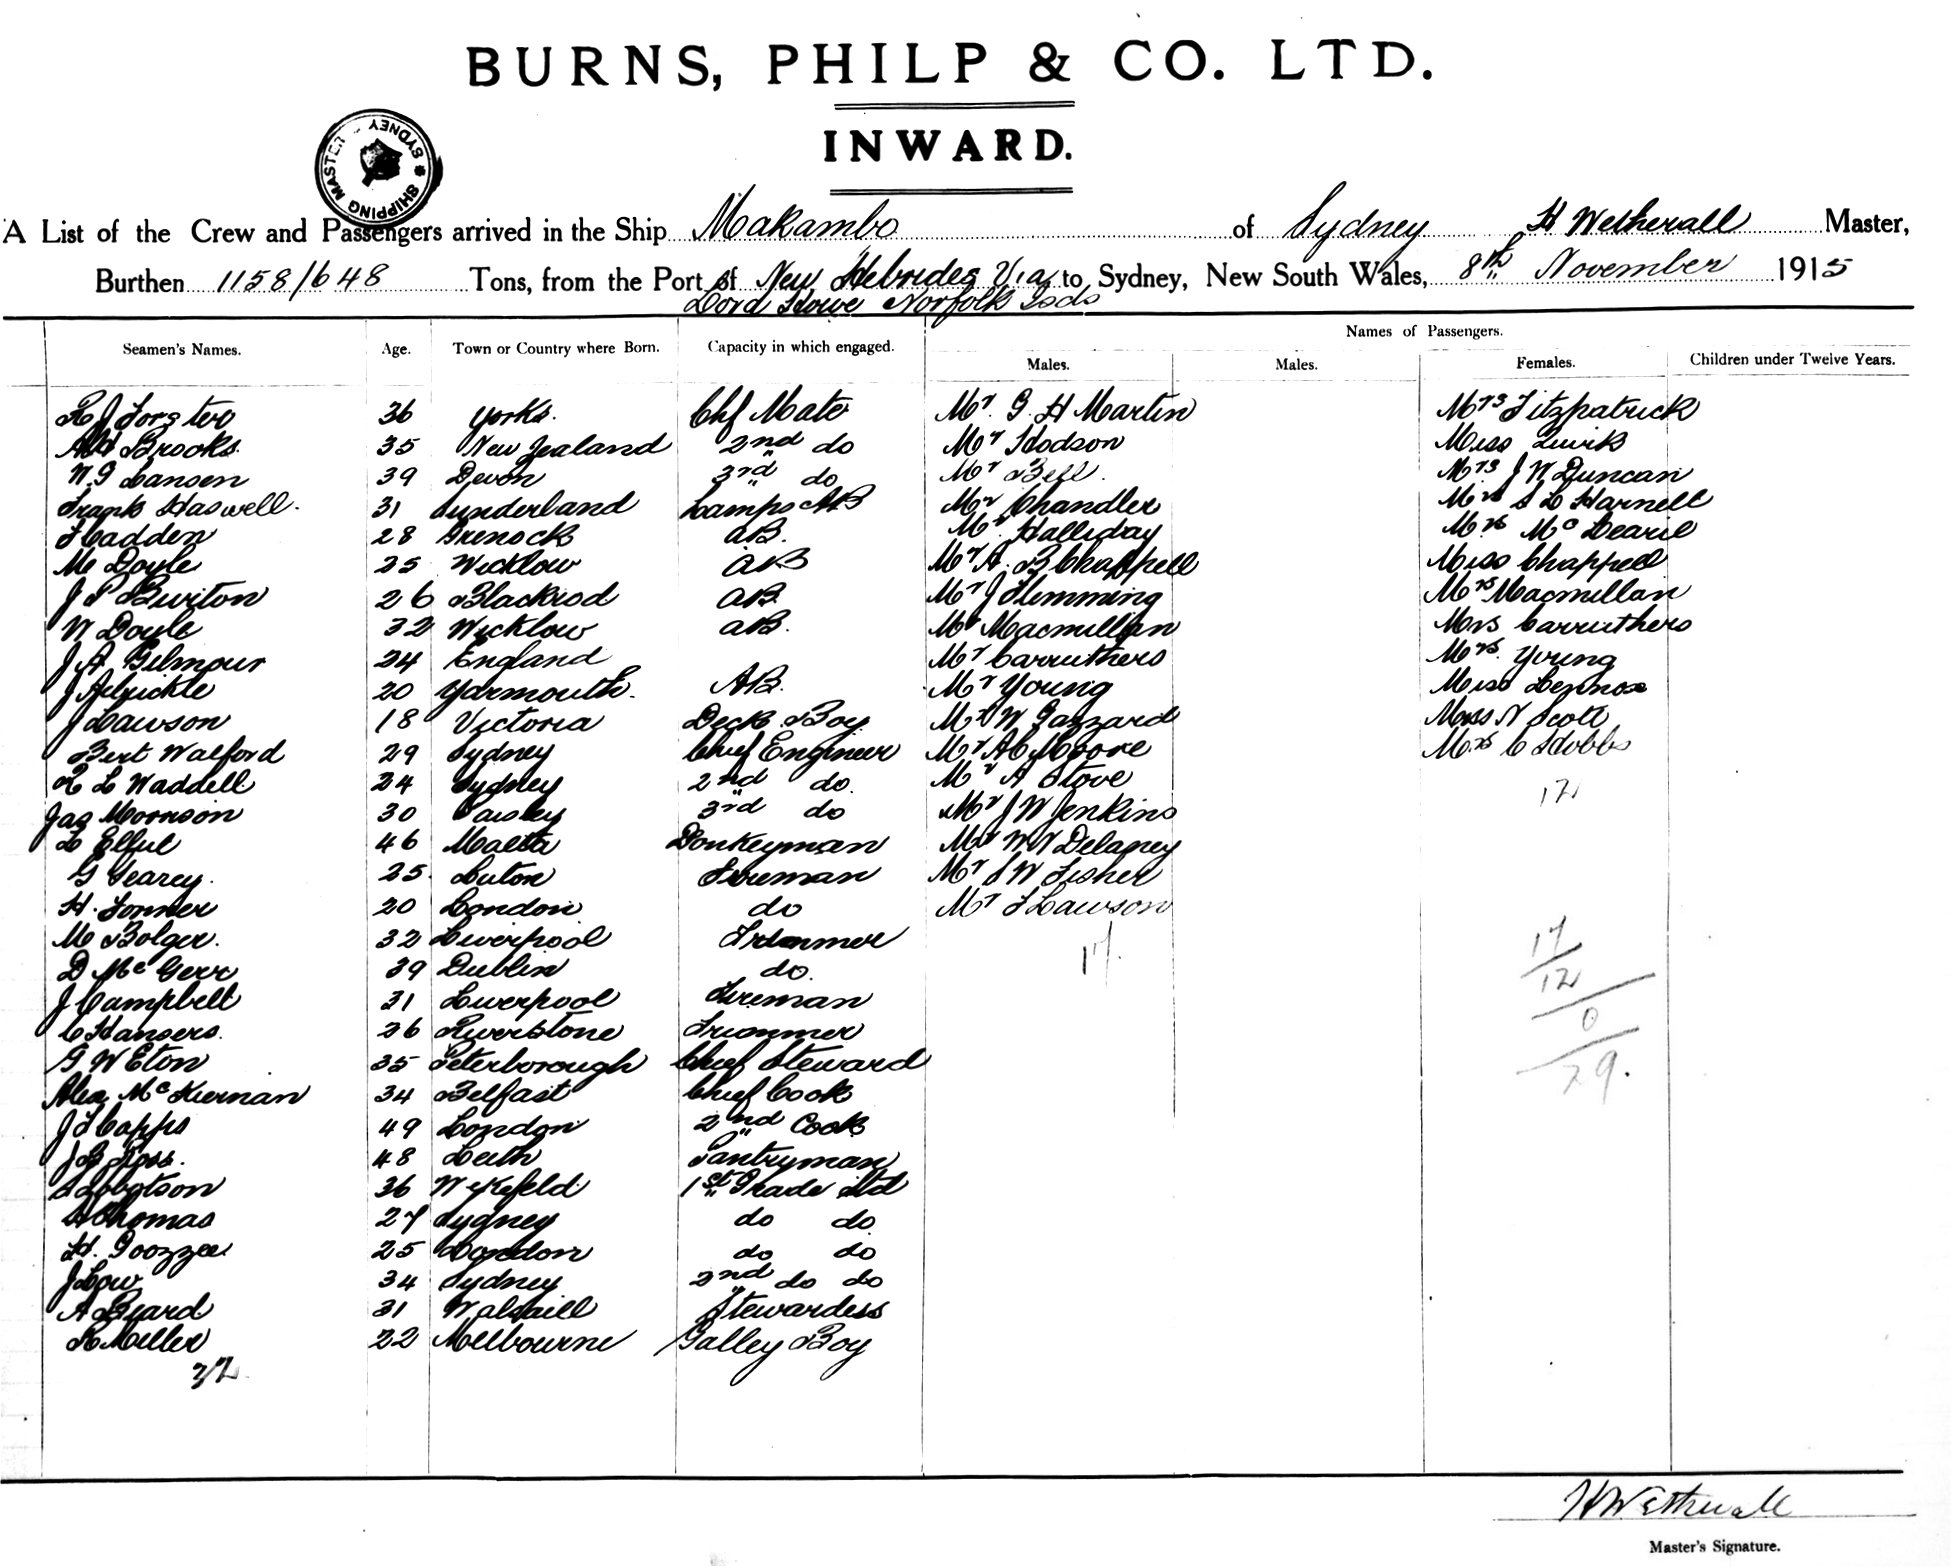 BURNS, PHILP & CO. LTD.
INWARD.
SHIPPING MASTER SYDNEY
A List of the Crew and Passengers arrived in the Ship Makambo of Sydney H Wetherall Master,
Burthen 1158/648 Tons, from the Port of New Hebrides Via to Sydney, New South Wales, 8th November 1915
Lord Howe Norfolk Isds
Names of Passengers.
Seamen's Names. Age. Town or Country where Born. Capacity in which engaged. Males. Males. Females. Children under Twelve Years.
R J Forster 36 Yorks. Chf Mate Mr. G H Martin Mrs Fitzpatrick
AH Brooks 35 New Zealand 2nd do Mr Hodson Miss Quirk
39 Devon 3rd do Mr Bell. Mrs J W Duncan
Frank Haswell. 31 Sunderland Lamps AB Mr Chandler Mrs S L Harnell
28 Grenock AB. Mr Halliday Mrs Mc
M Doyle 25 Wicklow AB Mr A. B Chappell Miss Chappell
J P Burton 26 Blackrod AB Mr J Flemming Mrs Macmillan
W Doyle 32 Wicklow AB. Mr Macmillan Mrs Carruthers
J A Gilmour 24 England Mr Carruthers Mrs. Young
J 20 Yarmouth. AB. Mr Young Miss Lennox
J Lawson 18 Victoria Deck Boy Mr W Gazzard Miss N Scott
Bert Walford 29 Sydney Chief Engineer Mr AC Moore Mrs C Hobbs
L Waddell 24 Sydney 2nd do. Mr A Stove 12
Jas Morrison 30 Paisley 3rd do Mr J W Jenkins
46 Malta Donkeyman Mr W V Delaney
G Gearey. 25 Luton Fireman Mr J W Fisher
H. 20 London do Mr J Lawson
M Bolger. 32 Liverpool Trimmer 17.
D McGerr 39 Dublin do. 17
J Campbell 31 Liverpool Fireman 12
C Hansers. 26 Riverstone Trimmer 0
G W Eton 35 Peterborough Chief Steward 29.
Alex McKiernan 34 Belfast Chief Cook
J Capps 49 London 2nd Cook
J G Ross. 48 Leith Pantryman
36 1st Grade Std
Thomas 27 Sydney do do
H. Goozzee 25 London do do
J Low 34 Sydney 2nd do do
A Beard 31 Walsaill Stewardess
Miller 22 Mellbourne Galley Boy
32
H Wetherall
Master's Signature.